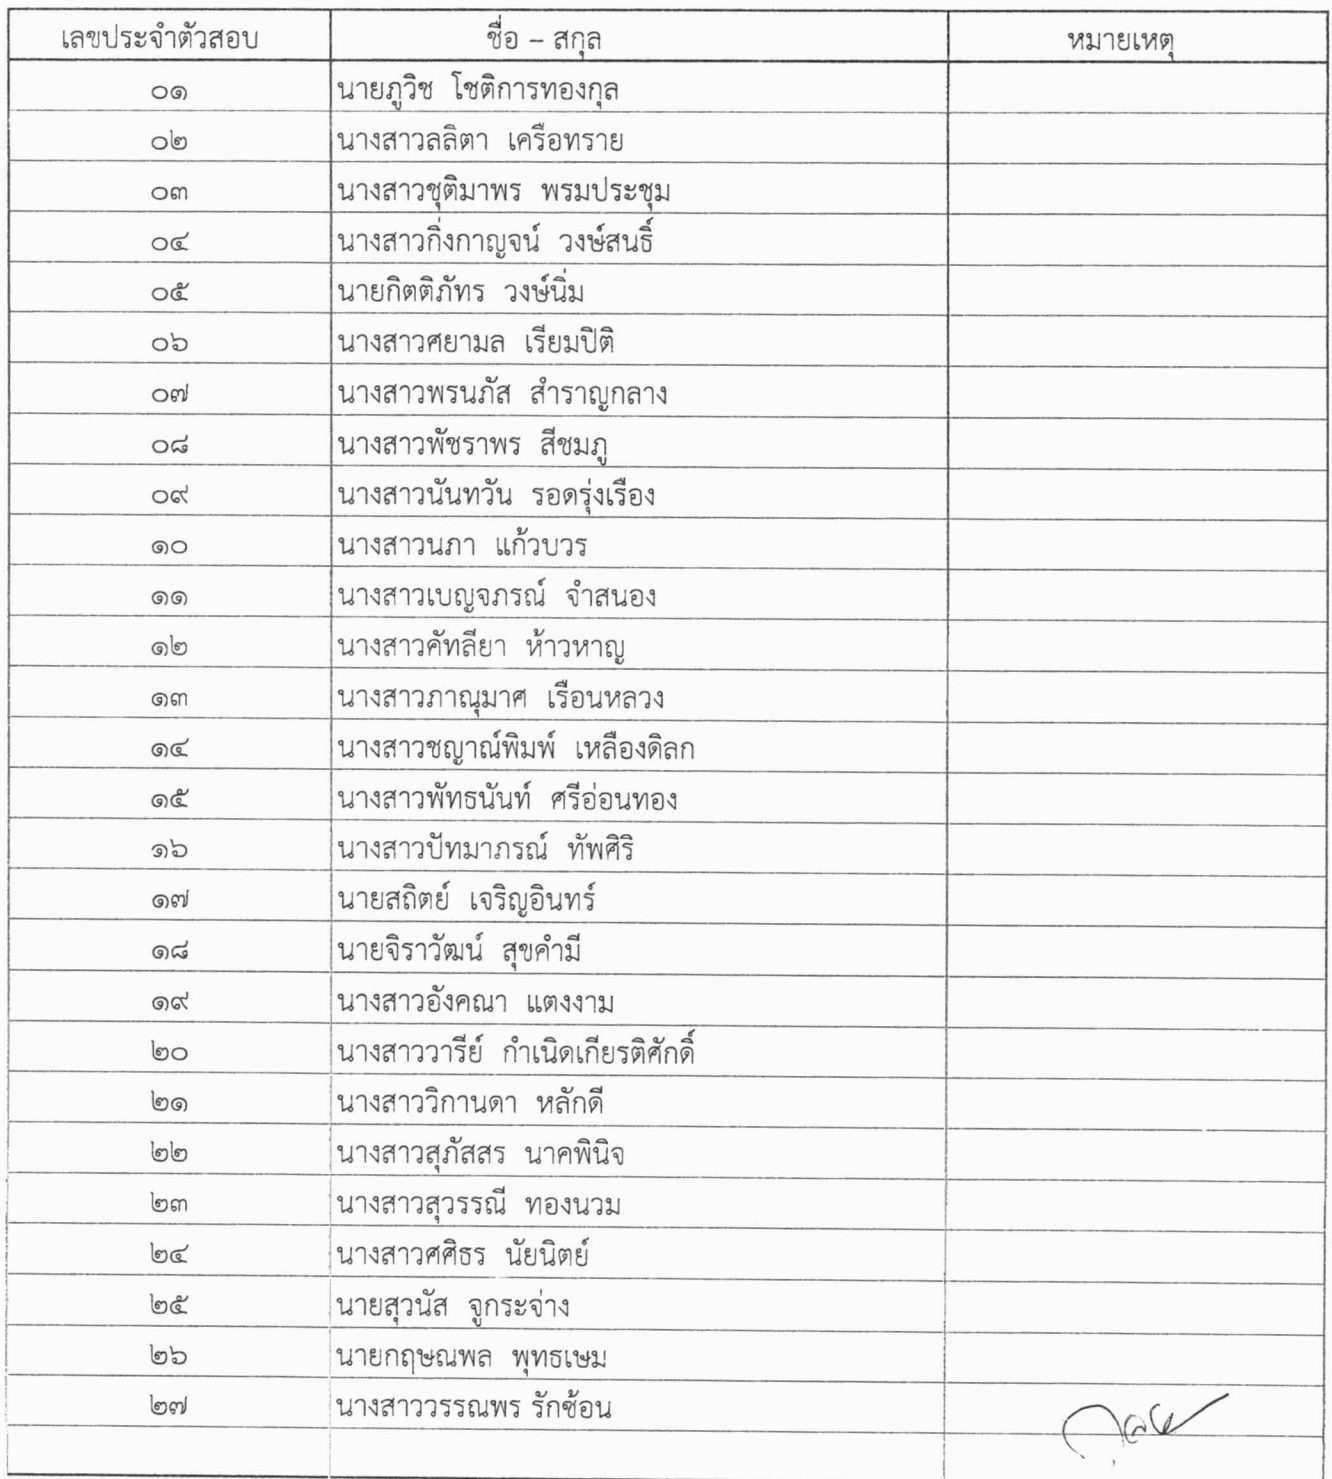 เลขประจำตัวสอบ ชื่อ – สกุล หมายเหตุ
๐๑ นายภูวิช โชติการทองกุล
๐๒ นางสาวลลิตา เครือทราย
๐๓ นางสาวชุติมาพร พรมประชุม
๐๔ นางสาวกิ่งกาญจน์ วงษ์สนธิ์
๐๕ นายกิตติภัทร วงษ์นิ่ม
๐๖ นางสาวศยามล เรียมปิติ
๐๗ นางสาวพรนภัส สำราญกลาง
๐๘ นางสาวพัชราพร สีชมภู
๐๙ นางสาวนันทวัน รอดรุ่งเรือง
๑๐ นางสาวนภา แก้วบวร
๑๑ นางสาวเบญจภรณ์ จำสนอง
๑๒ นางสาวคัทลียา ห้าวหาญ
๑๓ นางสาวภาณุมาศ เรือนหลวง
๑๔ นางสาวชญาณ์พิมพ์ เหลืองดิลก
๑๕ นางสาวพัทธนันท์ ศรีอ่อนทอง
๑๖ นางสาวปัทมาภรณ์ ทัพศิริ
๑๗ นายสถิตย์ เจริญอินทร์
๑๘ นายจิราวัฒน์ สุขคำมี
๑๙ นางสาวอังคณา แตงงาม
๒๐ นางสาววารีย์ กำเนิดเกียรติศักดิ์
๒๑ นางสาววิกานดา หลักดี
๒๒ นางสาวสุภัสสร นาคพินิจ
๒๓ นางสาวสุวรรณี ทองนวม
๒๔ นางสาวศศิธร นัยนิตย์
๒๕ นายสุวนัส จูกระจ่าง
๒๖ นายกฤษณพล พุทธเษม
๒๗ นางสาววรรณพร รักซ้อน